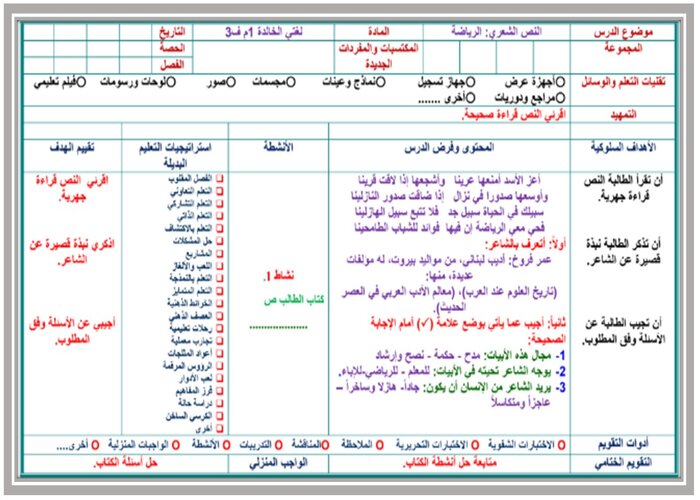 موضوع الدرس النص الشعري: الرياضة المادة لغتي الخالدة 1م ف3 التاريخ
المجموعة المكتسبات والمفردات الجديدة الحصة
الفصل
تقنيات التعلم والوسائل أجهزة عرض جهاز تسجيل نماذج وعينات مجسمات صور لوحات ورسومات فيلم تعليمي
مراجع ودوريات أخرى .......
التمهيد اقرئي النص قراءة صحيحة.
الأهداف السلوكية المحتوى وفرض الدرس الأنشطة استراتيجيات التعليم البديلة تقييم الهدف
أن تقرأ الطالبة النص قراءة جهرية.
أن تذكر الطالبة نبذة قصيرة عن الشاعر.
أن تجيب الطالبة عن الأسئلة وفق المطلوب.
أعز الأسد أمنعها عرينا وأشجعها إذا لاقت قرينا
وأوسعها صدورا في نزال إذا ضاقت صدور النازلينا
سبيلك في الحياة سبيل جد فلا تتبع سبيل الهازلينا
فحي معي الرياضة إن فيها فوائد للشباب الطامحينا
أولاً: أتعرف بالشاعر:
عمر فروخ: أديب لبناني، من مواليد بيروت، له مؤلفات
عديدة، منها:
(تاريخ العلوم عند العرب)، (معالم الأدب العربي في العصر
الحديث).
ثانياً: أجيب عما يأتي بوضع علامة (✓) أمام الإجابة
الصحيحة:
1- مجال هذه الأبيات: مدح - حكمة - نصح وإرشاد
2- يوجه الشاعر تحيته في الأبيات: للمعلم - للرياضي-للإباء.
3- يريد الشاعر من الإنسان أن يكون: جاداً- هازلا وساخراً –
عاجزاً ومتكاسلاً
نشاط 1.
كتاب الطالب ص
....................
الفصل المقلوب
التعلم التعاوني
التعلم التشاركي
التعلم الذاتي
التعلم بالاكتشاف
حل المشكلات
المشاريع
اللعب والألغاز
التعلم بالنمذجة
التعلم المتمايز
الخرائط الذهنية
العصف الذهني
رحلات تعليمية
تجارب معملية
أعواد المثلجات
الرؤوس المرقمة
لعب الأدوار
فرز المفاهيم
دراسة حالة
الكرسي الساخن
أخرى
اقرئي النص قراءة جهرية.
اذكري نبذة قصيرة عن الشاعر.
أجيبي عن الأسئلة وفق المطلوب.
أدوات التقويم الاختبارات الشفوية الاختبارات التحريرية الملاحظة المناقشة التدريبات الأنشطة الواجبات المنزلية أخرى....
التقويم الختامي متابعة حل أنشطة الكتاب. الواجب المنزلي حل أسئلة الكتاب.